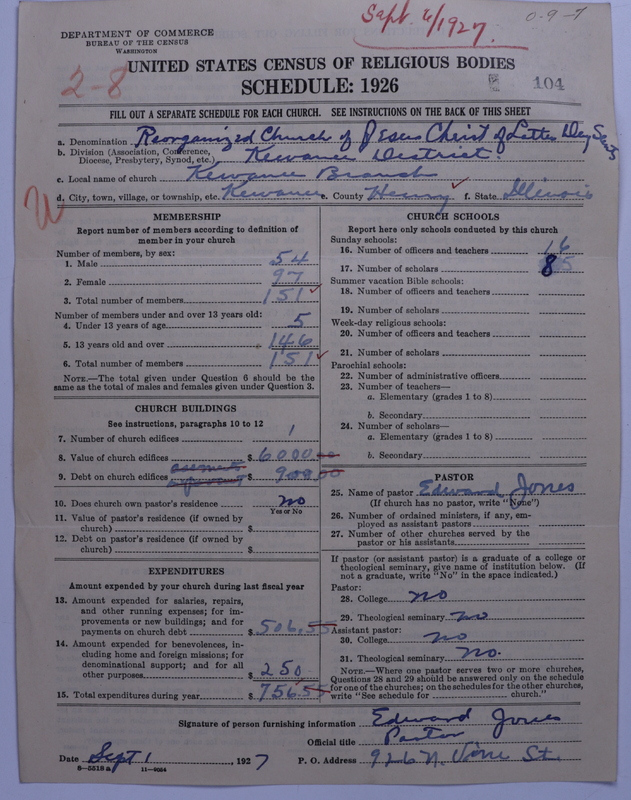 Sept. 6/1927.
0-9-7
DEPARTMENT OF COMMERCE
BUREAU OF THE CENSUS
WASHINGTON
2-8
UNITED STATES CENSUS OF RELIGIOUS BODIES
SCHEDULE: 1926
104
FILL OUT A SEPARATE SCHEDULE FOR EACH CHURCH. SEE INSTRUCTIONS ON THE BACK OF THIS SHEET
a. Denomination Reorganized Church of Jesus Christ of Latter Day Saints
b. Division (Association, Conference, Diocese, Presbytery, Synod, etc.) Kewanee District.
c. Local name of church Kewanee Branch
d. City, town, village, or township, etc. Kewanee e. County Henry f. State Illinois
MEMBERSHIP
Report number of members according to definition of
member in your church
Number of members, by sex:
1. Male 54
2. Female 97
3. Total number of members 151
Number of members under and over 13 years old:
4. Under 13 years of age 5
5. 13 years old and over 146
6. Total number of members 151
NOTE.—The total given under Question 6 should be the
same as the total of males and females given under Question 3.
CHURCH BUILDINGS
See instructions, paragraphs 10 to 12
7. Number of church edifices 1
8. Value of church edifices $ 6000.00
9. Debt on church edifices $ 900.00
10. Does church own pastor's residence no
Yes or No
11. Value of pastor's residence (if owned by
church) $
12. Debt on pastor's residence (if owned by
church) $
EXPENDITURES
Amount expended by your church during last fiscal year
13. Amount expended for salaries, repairs,
and other running expenses; for im-
provements or new buildings; and for
payments on church debt $ 506.55
14. Amount expended for benevolences, in-
cluding home and foreign missions; for
denominational support; and for all
other purposes $ 250
15. Total expenditures during year $ 756.55
CHURCH SCHOOLS
Report here only schools conducted by this church
Sunday schools:
16. Number of officers and teachers 16
17. Number of scholars 85
Summer vacation Bible schools:
18. Number of officers and teachers
19. Number of scholars
Week-day religious schools:
20. Number of officers and teachers
21. Number of scholars
Parochial schools:
22. Number of administrative officers
23. Number of teachers—
a. Elementary (grades 1 to 8)
b. Secondary
24. Number of scholars—
a. Elementary (grades 1 to 8)
b. Secondary
PASTOR
25. Name of pastor Edward Jones
(If church has no pastor, write "None")
26. Number of ordained ministers, if any, em-
ployed as assistant pastors
27. Number of other churches served by the
pastor or his assistants
If pastor (or assistant pastor) is a graduate of a college or
theological seminary, give name of institution below. (If
not a graduate, write "No" in the space indicated.)
Pastor:
28. College no
29. Theological seminary no
Assistant pastor:
30. College no
31. Theological seminary no.
NOTE.—Where one pastor serves two or more churches,
Questions 28 and 29 should be answered only on the schedule
for one of the churches; on the schedules for the other churches,
write "See schedule for church."
Signature of person furnishing information Edward Jones
Official title Pastor
Date Sept 1, 1927 P. O. Address 926 N. Vine St.
8—5518a 11—9024